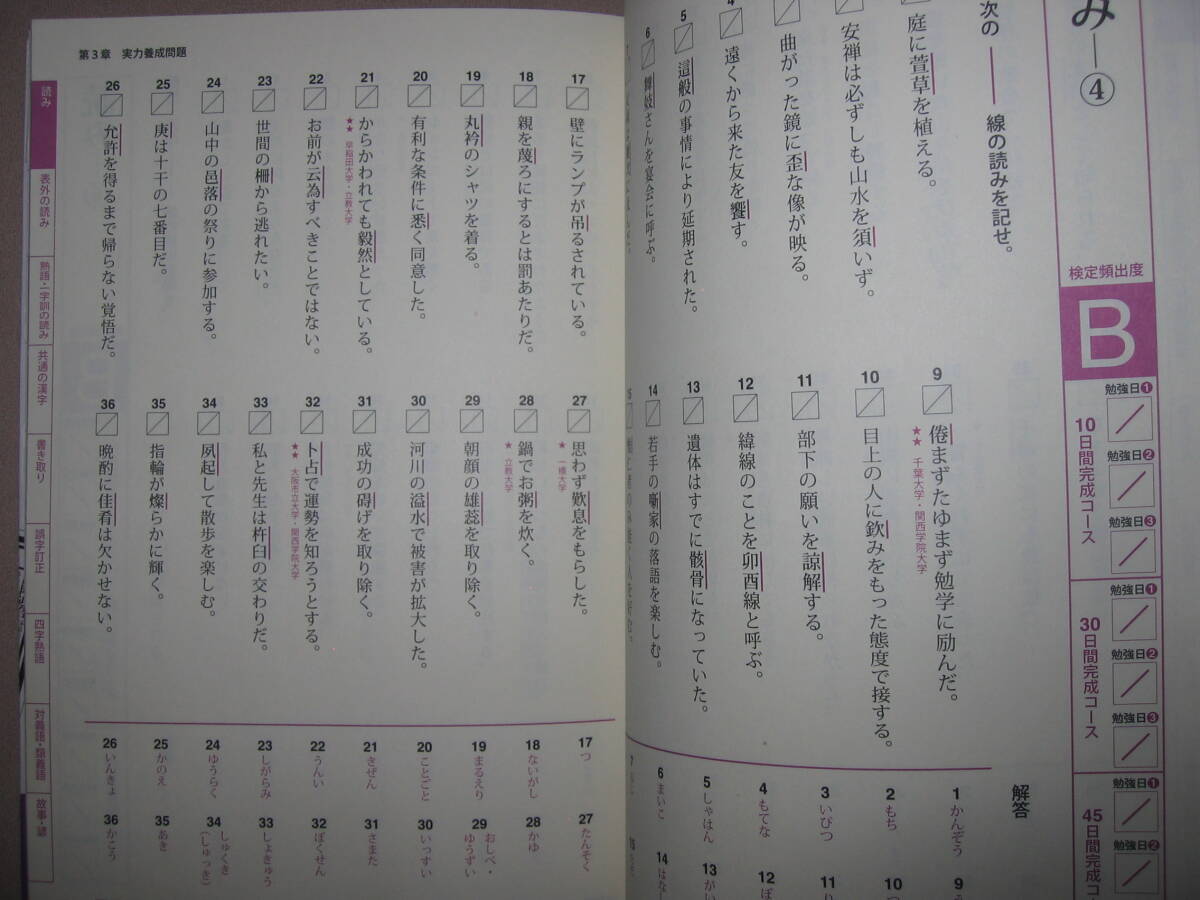 み―④
検定頻出度
B
次の――線の読みを記せ。
庭に萱草を植える。
安禅は必ずしも山水を須いず。
曲がった鏡に歪な像が映る。
4 遠くから来た友を饗す。
5 這般の事情により延期された。
6 舞妓さんを宴会に呼ぶ。
9 倦まずたゆまず勉学に励んだ。
★★ 千葉大学・関西学院大学
10 目上の人に欽みをもった態度で接する。
11 部下の願いを諒解する。
12 緯線のことを卯酉線と呼ぶ。
13 遺体はすでに骸骨になっていた。
14 若手の噺家の落語を楽しむ。
15
解答
1 かんぞう
2 もち
3 いびつ
4 もてな
5 しゃはん
6 まいこ
7
9
10
11
12 ぼ
13 がい
14 はなし
15
勉強日❶
勉強日❷
勉強日❸
10日間完成コース
勉強日❶
勉強日❷
勉強日❸
30日間完成コース
勉強日❶
勉強日❷
45日間完成コ
第3章 実力養成問題
読み
表外の読み
熟語・一字訓の読み
共通の漢字
書き取り
誤字訂正
四字熟語
対義語・類義語
故事・諺
17 壁にランプが吊るされている。
18 親を蔑ろにするとは罰あたりだ。
19 丸衿のシャツを着る。
20 有利な条件に悉く同意した。
21 からかわれても毅然としている。
★★ 早稲田大学・立教大学
22 お前が云為すべきことではない。
23 世間の柵から逃れたい。
24 山中の邑落の祭りに参加する。
25 庚は十干の七番目だ。
26 允許を得るまで帰らない覚悟だ。
27 思わず歎息をもらした。
★ 一橋大学
28 鍋でお粥を炊く。
★ 立教大学
29 朝顔の雄蕊を取り除く。
30 河川の溢水で被害が拡大した。
31 成功の碍げを取り除く。
32 卜占で運勢を知ろうとする。
★★ 大阪市立大学・関西学院大学
33 私と先生は杵臼の交わりだ。
34 夙起して散歩を楽しむ。
35 指輪が燦らかに輝く。
36 晩酌に佳肴は欠かせない。
17 つ
18 ないがし
19 まるえり
20 ことごと
21 きぜん
22 うんい
23 しがらみ
24 ゆうらく
25 かのえ
26 いんきょ
27 たんそく
28 かゆ
29 おしべ・ゆうずい
30 いっすい
31 さまた
32 ぼくせん
33 しょきゅう
34 しゅくき（しゅっき）
35 あき
36 かこう